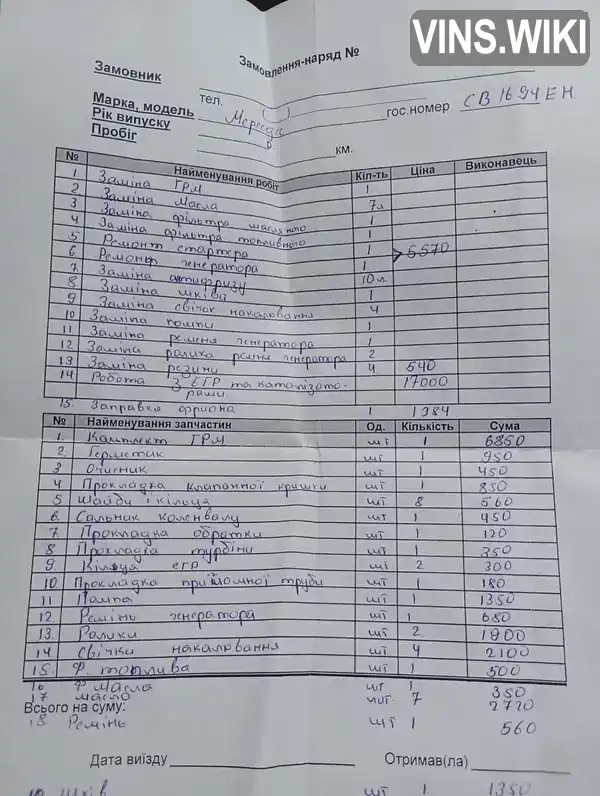 VINS.WIKI
Замовлення-наряд №
Замовник
тел. ( )
Марка, модель Мерседес гос.номер СВ 1694 ЕН
Рік випуску
Пробіг км.
№ Найменування робіт Кіл-ть Ціна Виконавець
1 Заміна ГРМ 1
2 Заміна масла 7л
3 Заміна фільтра масляного 1
4 Заміна фільтра топливного 1
5 Ремонт стартера 1 5570
6 Ремонт генератора 1
7 Заміна антифризу 10л.
8 Заміна шківа 1
9 Заміна свічок накаловання 4
10 Заміна помпи 1
11 Заміна ременя генератора 1
12 Заміна ролика ременя генератора 2
13 Заміна резини 4 540
14 Робота з ЕГР та каталізато- 17000
рами
15. Заправка фриона 1 1384
№ Найменування запчастин Од. Кількість Сума
1. Комплект ГРМ шт 1 6850
2. Герметик шт 1 950
3 Очисник шт 1 450
4 Прокладка клапанної кришки шт 1 850
5 Шайби і кільца шт 8 560
6. Сальник коленвалу шт 1 450
7. Прокладка обратки шт 1 120
8 Прокладка турбіни шт 1 350
9. Кільца егр шт 2 300
10. Прокладка прийомної труби шт 1 180
11 Помпа шт 1 1350
12. Ремінь генератора шт 1 680
13. Ролики шт 2 1900
14 Свічки накаловання шт 4 2100
15. Ф. топлива шт 1 500
16 Ф масла шт 1 350
17 масло шт 7 2720
Всього на суму:
18. Ремінь шт 1 560
Дата виїзду Отримав(ла)
19. Шків шт 1 1350